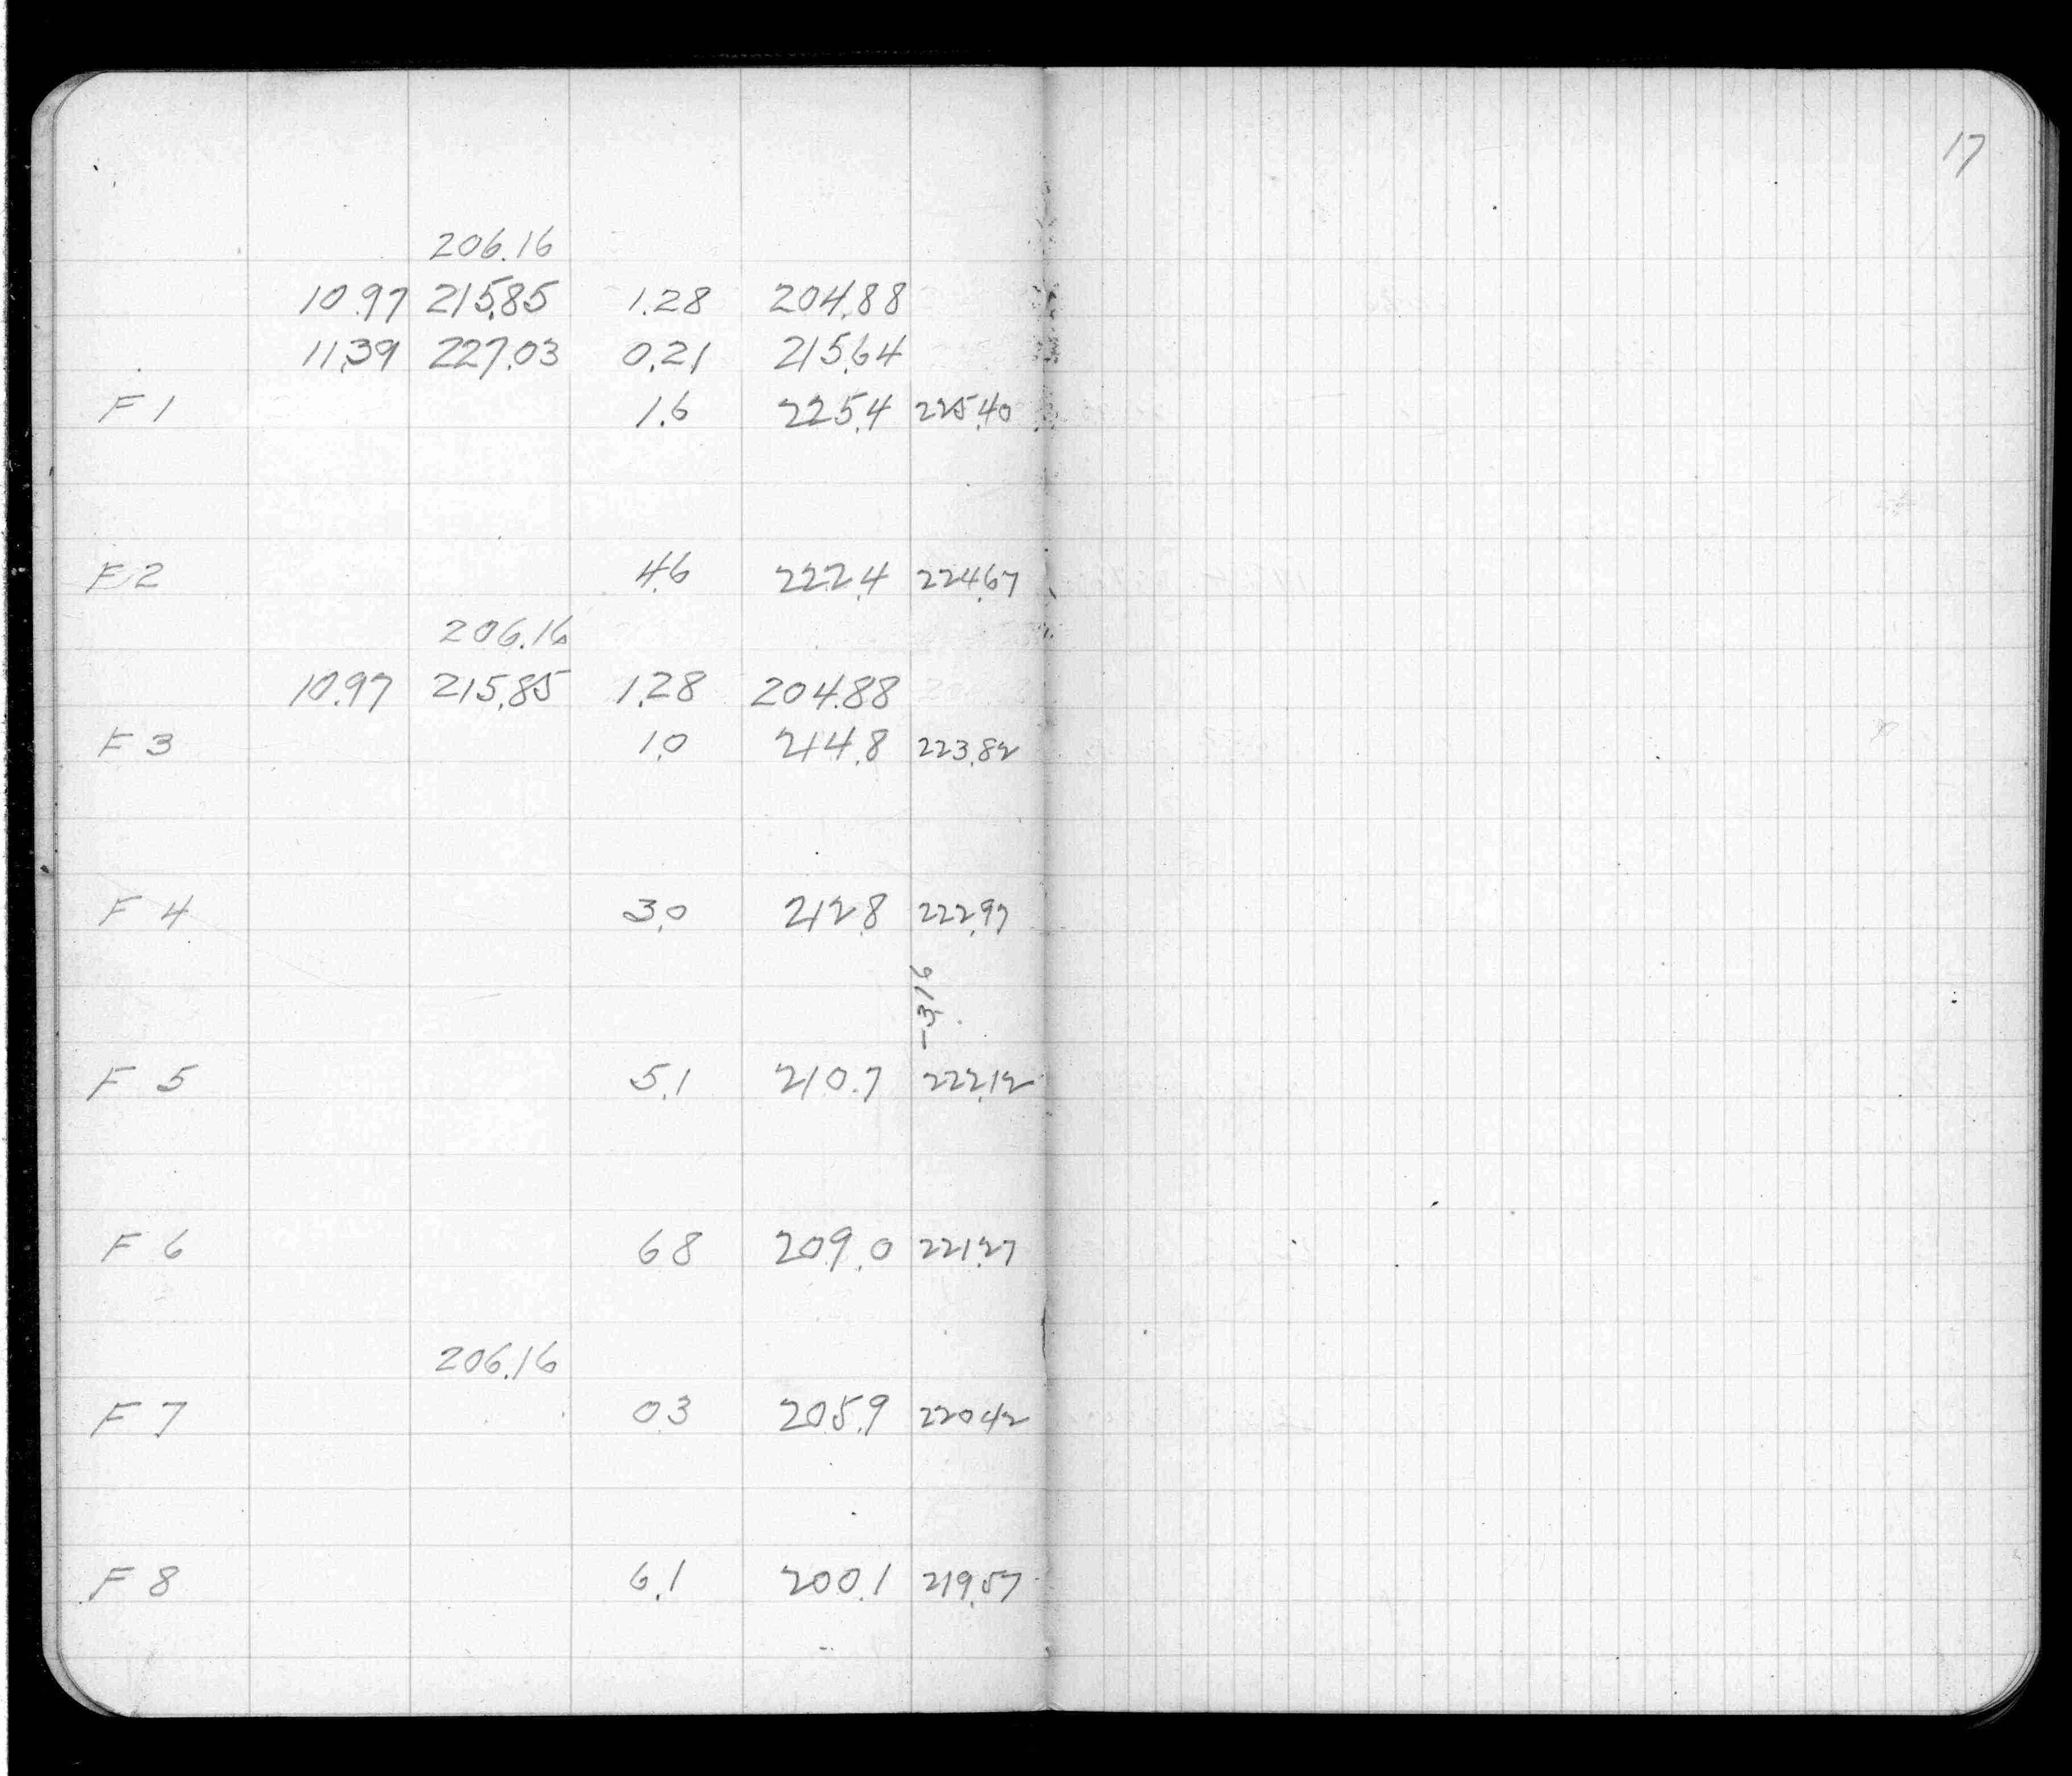 17
206.16
10.97 215.85 1.28 204.88
11.39 227.03 0.21 215.64
F 1 1.6 225.4 225.40
F 2 4.6 222.4 224.67
206.16
10.97 215.85 1.28 204.88
F 3 1.0 214.8 223.82
F 4 3.0 212.8 222.97
-.316
F 5 5.1 210.7 222.12
F 6 6.8 209.0 221.27
206.16
F 7 0.3 205.9 220.42
F 8 6.1 200.1 219.57